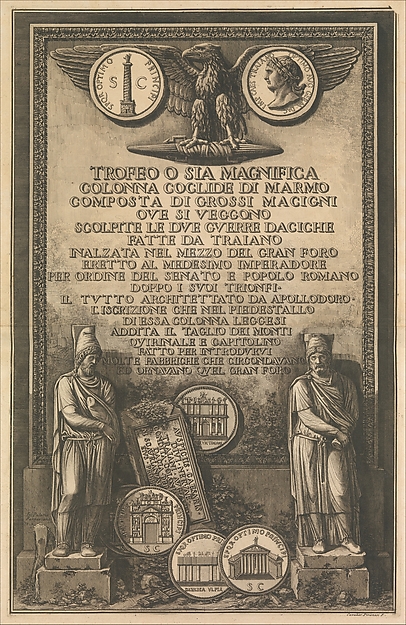 SPQR OPTIMO PRINCIPI
S C
TROFEO O SIA MAGNIFICA
COLONNA COCLIDE DI MARMO
COMPOSTA DI GROSSI MACIGNI
OVE SI VEGGONO
SCOLPITE LE DVE GVERRE DACICHE
FATTE DA TRAIANO
INALZATA NEL MEZZO DEL GRAN FORO
ERETTO AL MEDESIMO IMPERADORE
PER ORDINE DEL SENATO E POPOLO ROMANO
DOPPO I SVOI TRIONFI·
IL TVTTO ARCHITETTATO DA APOLLODORO·
L'ISCRIZIONE CHE NEL PIEDESTALLO
DI ESSA COLONNA LEGGESI
ADDITA IL TAGLIO DEI MONTI
QVIRINALE E CAPITOLINO
FATTO PER INTRODVRVI
MOLTE FABBRICHE CHE CIRCONDAVANO
ED ORNAVANO QVEL GRAN FORO
S C
SPQR OPTIMO PRI
BASILICA VLPIA
SPQR OPTIMO PRINCIPI
S C
Cavalier Piranesi F.